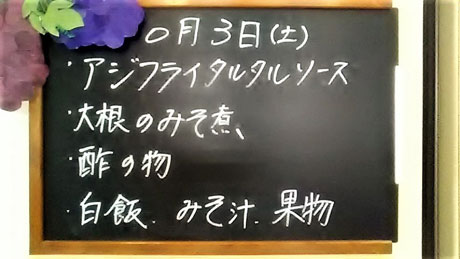 0月3日(土)
・アジフライタルタルソース
・大根のみそ煮、
・酢の物
・白飯、みそ汁、果物